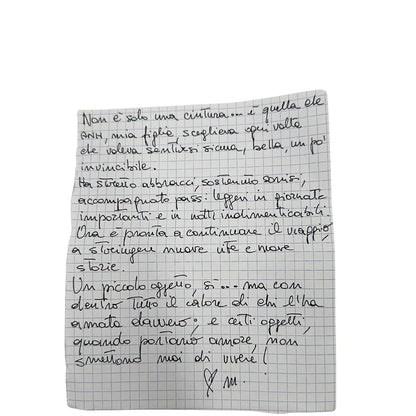 Non è solo una cintura... è quella che
ANH, mia figlia sceglieva ogni volta
che voleva sentirsi sicura, bella, un po'
invincibile.
Ha stretto abbracci, sostenuto sorrisi,
accompagnato passi leggeri in giornate
importanti e in notti indimenticabili.
Ora è pronta a continuare il viaggio,
a stringere nuove vite e nuove
storie.
Un piccolo oggetto, sì... ma con
dentro tutto il calore di chi l'ha
amata davvero: e certi oggetti,
quando portano amore, non
smettono mai di vivere!
♡ M.